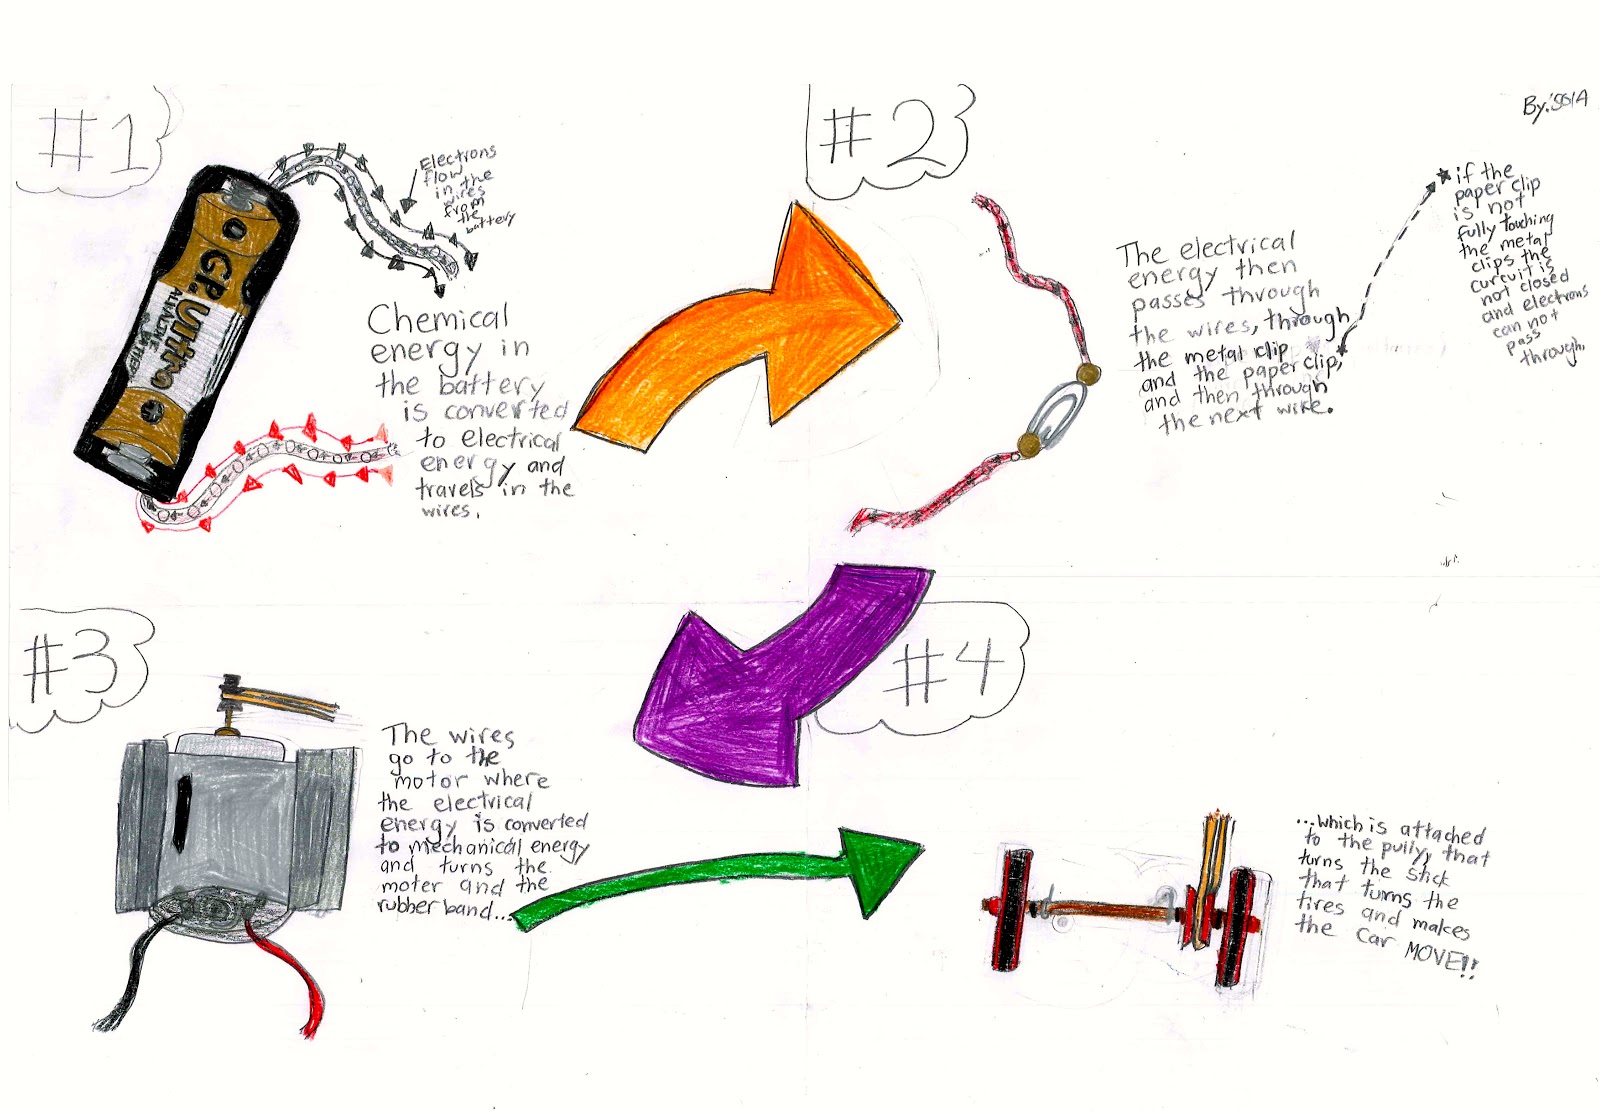 #1
Electrons
flow
in the
wires
from
the
battery
GP
Ultra
ALKALINE
Chemical
energy in
the battery
is converted
to electrical
energy and
travels in the
wires.
#2
The electrical
energy then
passes through
the wires, through
the metal clip
and the paper clip,
and then through
the next wire.
By:
if the
paper clip
is not
fully touching
the metal
clips the
curcuit is
not closed
and electrons
can not
pass
through.
#3
The wires
go to the
motor where
the electrical
energy is converted
to mechanical energy
and turns the
moter and the
rubber band...
#4
...which is attached
to the pully, that
turns the stick
that turns the
tires and makes
the car MOVE!!